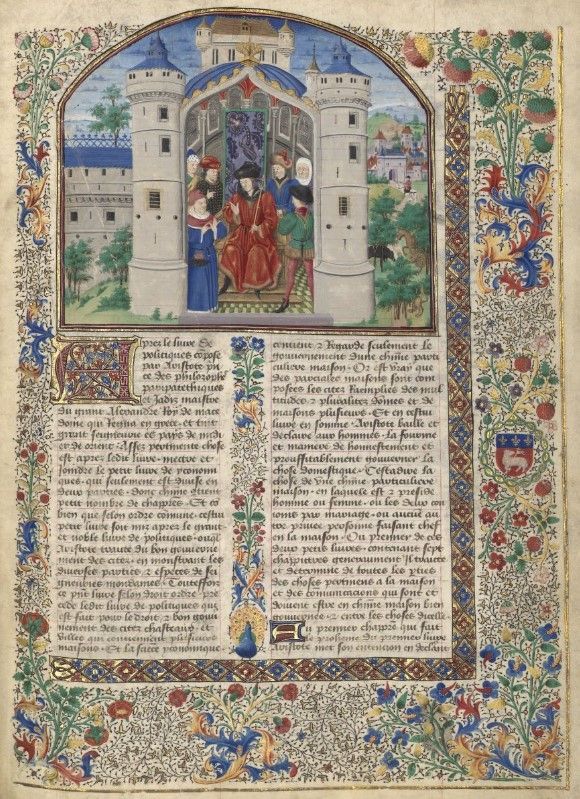 Aprez le livre de
politiques compose
par Aristote prince
des philosophes
et Jadiz maistre
du grant Alexandre Roy de mace
doine qui regna en grece, et tint
grant seigneurie es pays de midy
et de orient. Assez pertinente chose
est aprez ledit livre mettre et
joindre le petit livre de yconomi
ques, qui seulement est divise en
deux parties. donc chune tient
petit nombre de chaptres. Et co
bien que selon ordre comune cestuy
petit livre soit mis aprez le grant
et noble livre de politiques. ouql
Aristote traicte du bon gouverne
ment des citez. en monstrant les
diverses parties et especes de sei
gneuries mondaines. Touteffois
ce petit livre selon droit ordre pre
cede ledit livre de politiques qui
est fait pour le droit et bon gouver
nement des citez chasteaux et
villes qui contiennent plusieurs
maisons. Et la science yconomique
contient et Regarde seulement le
gouvernement dune chune parti
culiere maison. Or est vray que
des particules maisons sont com
posees les citez Remplies des mul
titudes et pluralitez domes et de
maisons plusieurs. Et en cestui
livre en somme Aristote baille et
declaire aux hommes. la fourme
et maniere de honnestement et
prouffitablement gouverner la
chose domestique. Cestadire la
chose de une chune particuliere
maison. en laquelle est et preside
homme ou femme. ou les deux con
joins par mariage. ou quelque au
tre privee personne faisant chef
en la maison. Ou premier de ces
deux petis livres, contenant sept
chappitres generalment Il traicte
et determine de toutes les pties
des choses pertinens a la maison
et des comunicacions qui sont et
doivent estre en chune maison bien
gouvernee. et entre les choses dicelle
Au premier chaptre qui fait
le prohesme du premier livre
Aristote met son entencion en declairant